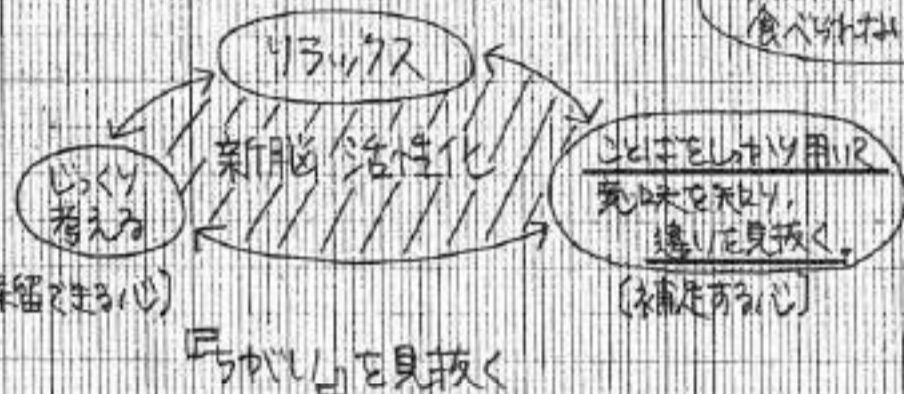 食べられない
リラックス
新脳 活性化
じっくり
考える
ことばをしっかり用いて
意味を知り,
違いを見抜く。
保留できる心)
(補足する心)
『ちがい』を見抜く